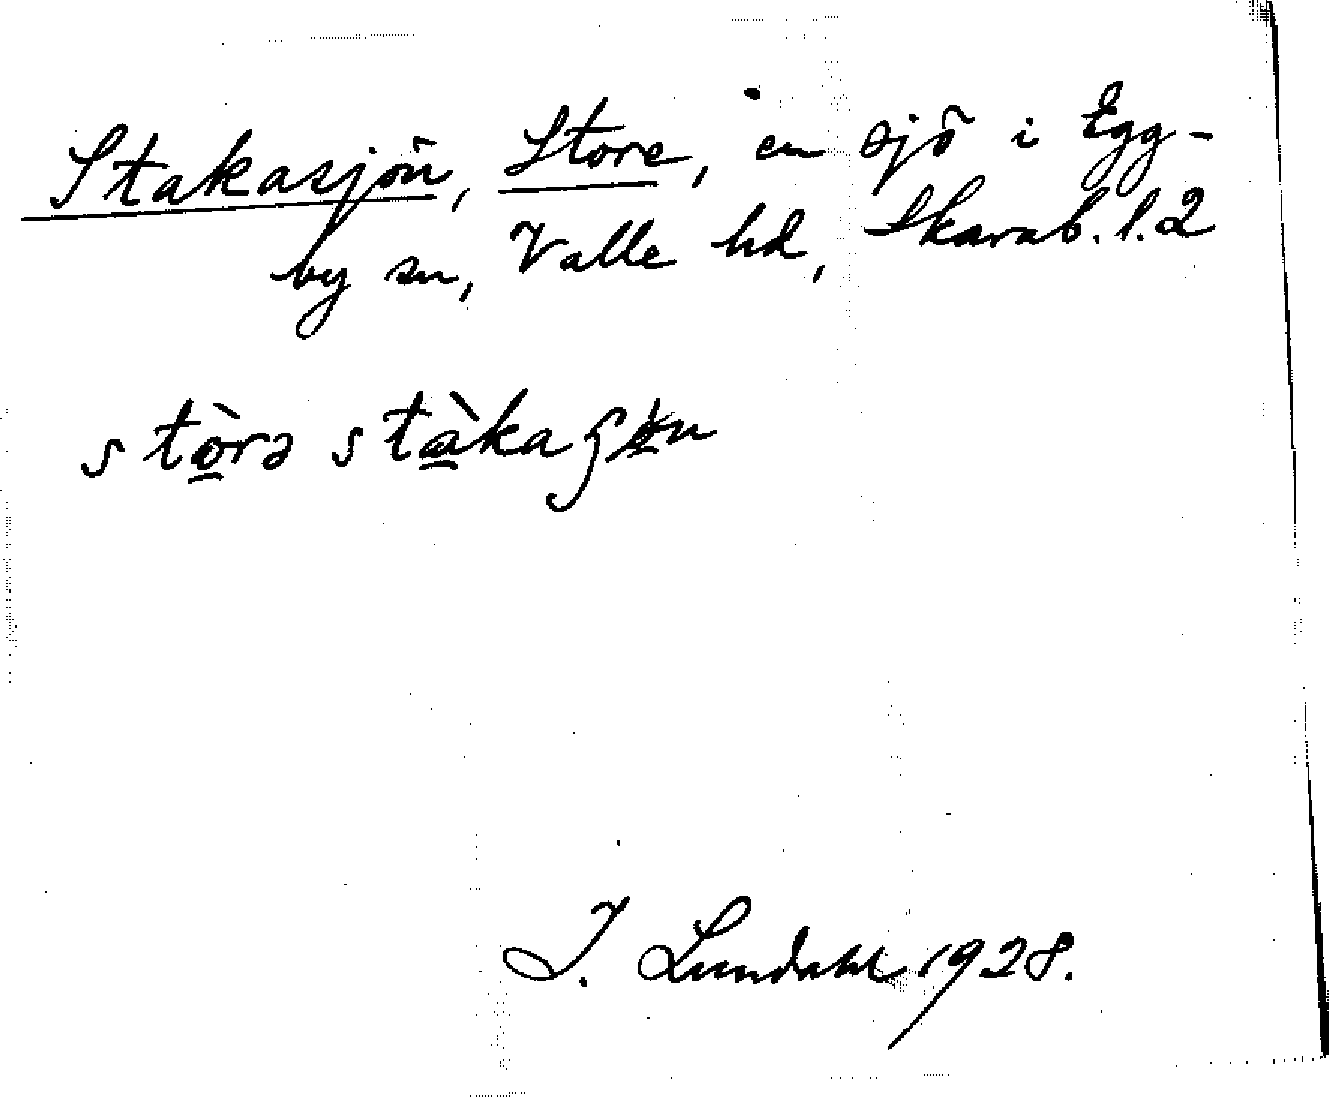 Stakasjön, Store, en sjö i Egg-
by sn, Valle hd, Skarab. l. 2
stòrə stàka
I. Lundahl 1928.